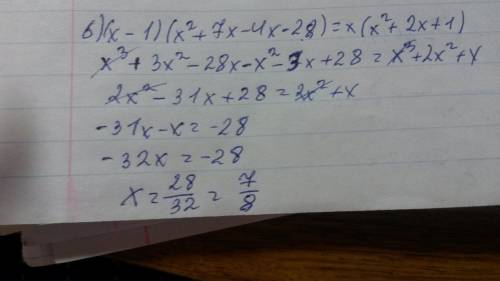 в) (x-1)(x²+7x-4x-28)=x(x²+2x+1)
x³+3x²-28x-x²-3x+28=x³+2x²+x
2x²-31x+28=2x²+x
-31x-x=-28
-32x=-28
x=28/32=7/8